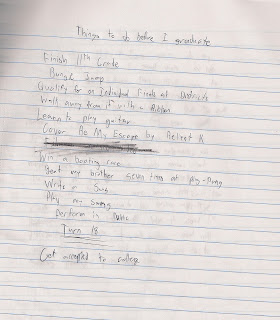 Things to do before I graduate
Finish 11th Grade
Bungee Jump
Qualify for an Individual Finals at Districts
Walk away from it with a Ribbon
Learn to play guitar
Cover Be My Escape by Relient K
Win a boating race
Beat my brother seven times at ping-Pong
Write a Song
Play my Song
Perform in
Turn 18
Get accepted to college